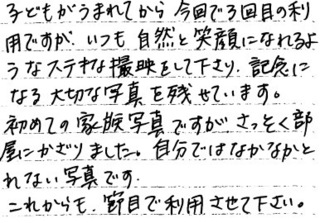 子どもがうまれてから 今回で3回目の利
用ですが、いつも 自然と笑顔になれるよ
うなステキな撮映をして下さり、記念に
なる大切な写真を残せています。
初めての家族写真ですが さっそく部
屋にかざりました。自分ではなかなかと
れない写真です。
これからも、節目で利用させて下さい。